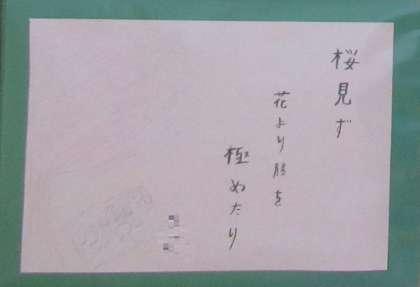 桜見ず
花より を
極めたり